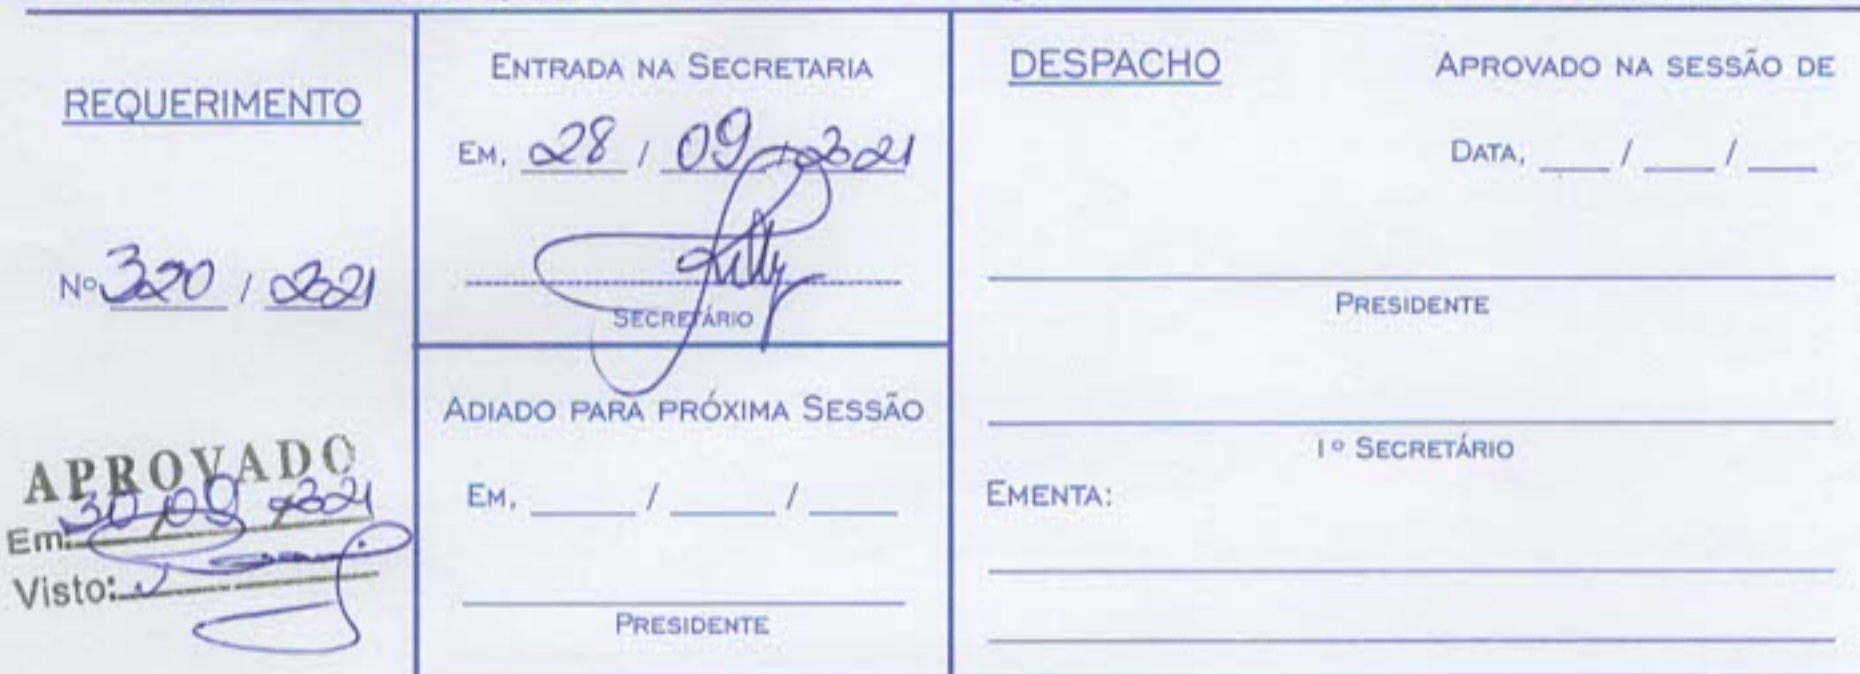 REQUERIMENTO
Nº 320 / 2021
APROVADO
Em: 30/09/2021
Visto:
ENTRADA NA SECRETARIA
EM, 28 / 09 / 2021
SECRETÁRIO
ADIADO PARA PRÓXIMA SESSÃO
EM, ____ / ____ / ____
PRESIDENTE
DESPACHO
APROVADO NA SESSÃO DE
DATA, ___ / ___ / ___
PRESIDENTE
1º SECRETÁRIO
EMENTA: